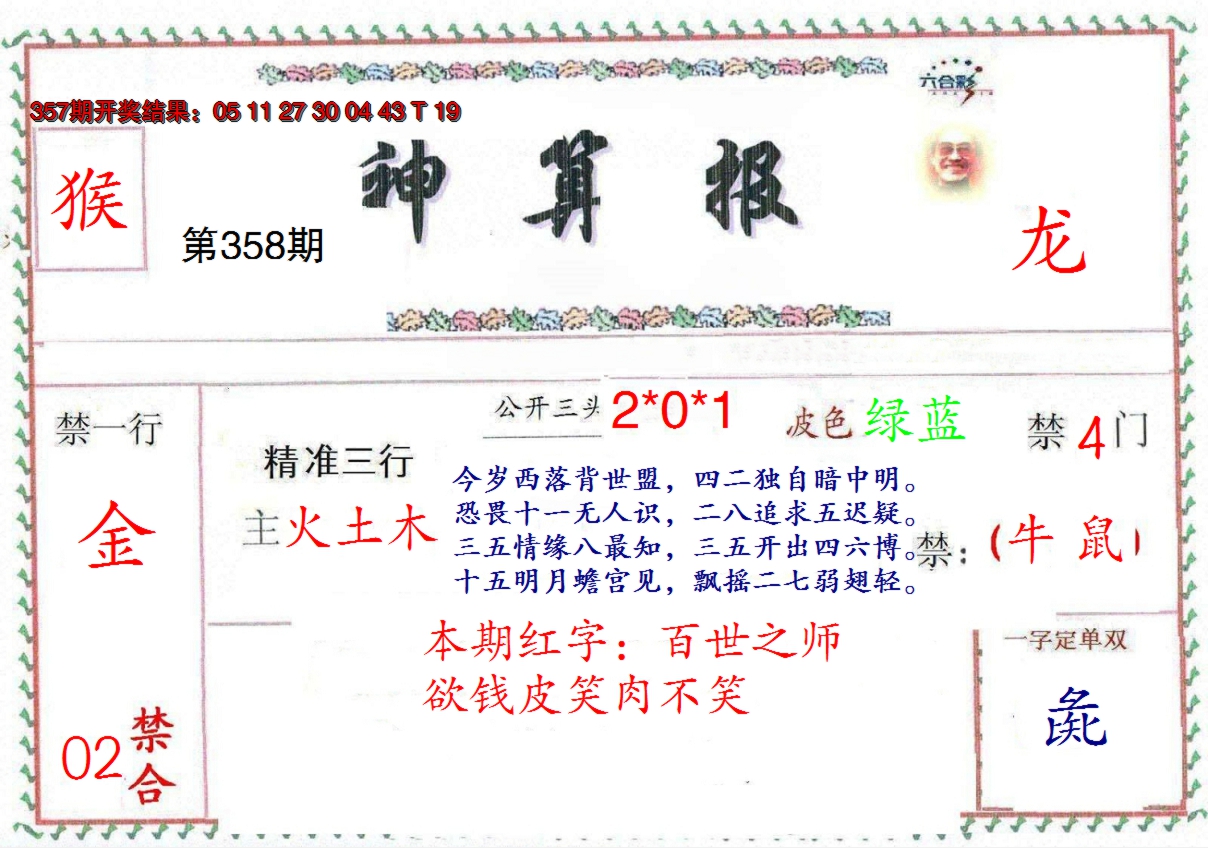 六合彩
357期开奖结果：05 11 27 30 04 43 T 19
神算报
猴
第358期
龙
禁一行
金
02
禁合
精准三行
主火土木
公开三头 2*0*1
波色 绿蓝
禁4门
今岁西落背世盟，四二独自暗中明。
恐畏十一无人识，二八追求五迟疑。
三五情缘八最知，三五开出四六博。
十五明月蟾宫见，飘摇二七弱翅轻。
禁：（牛 鼠）
本期红字：百世之师
欲钱皮笑肉不笑
一字定单双
彘